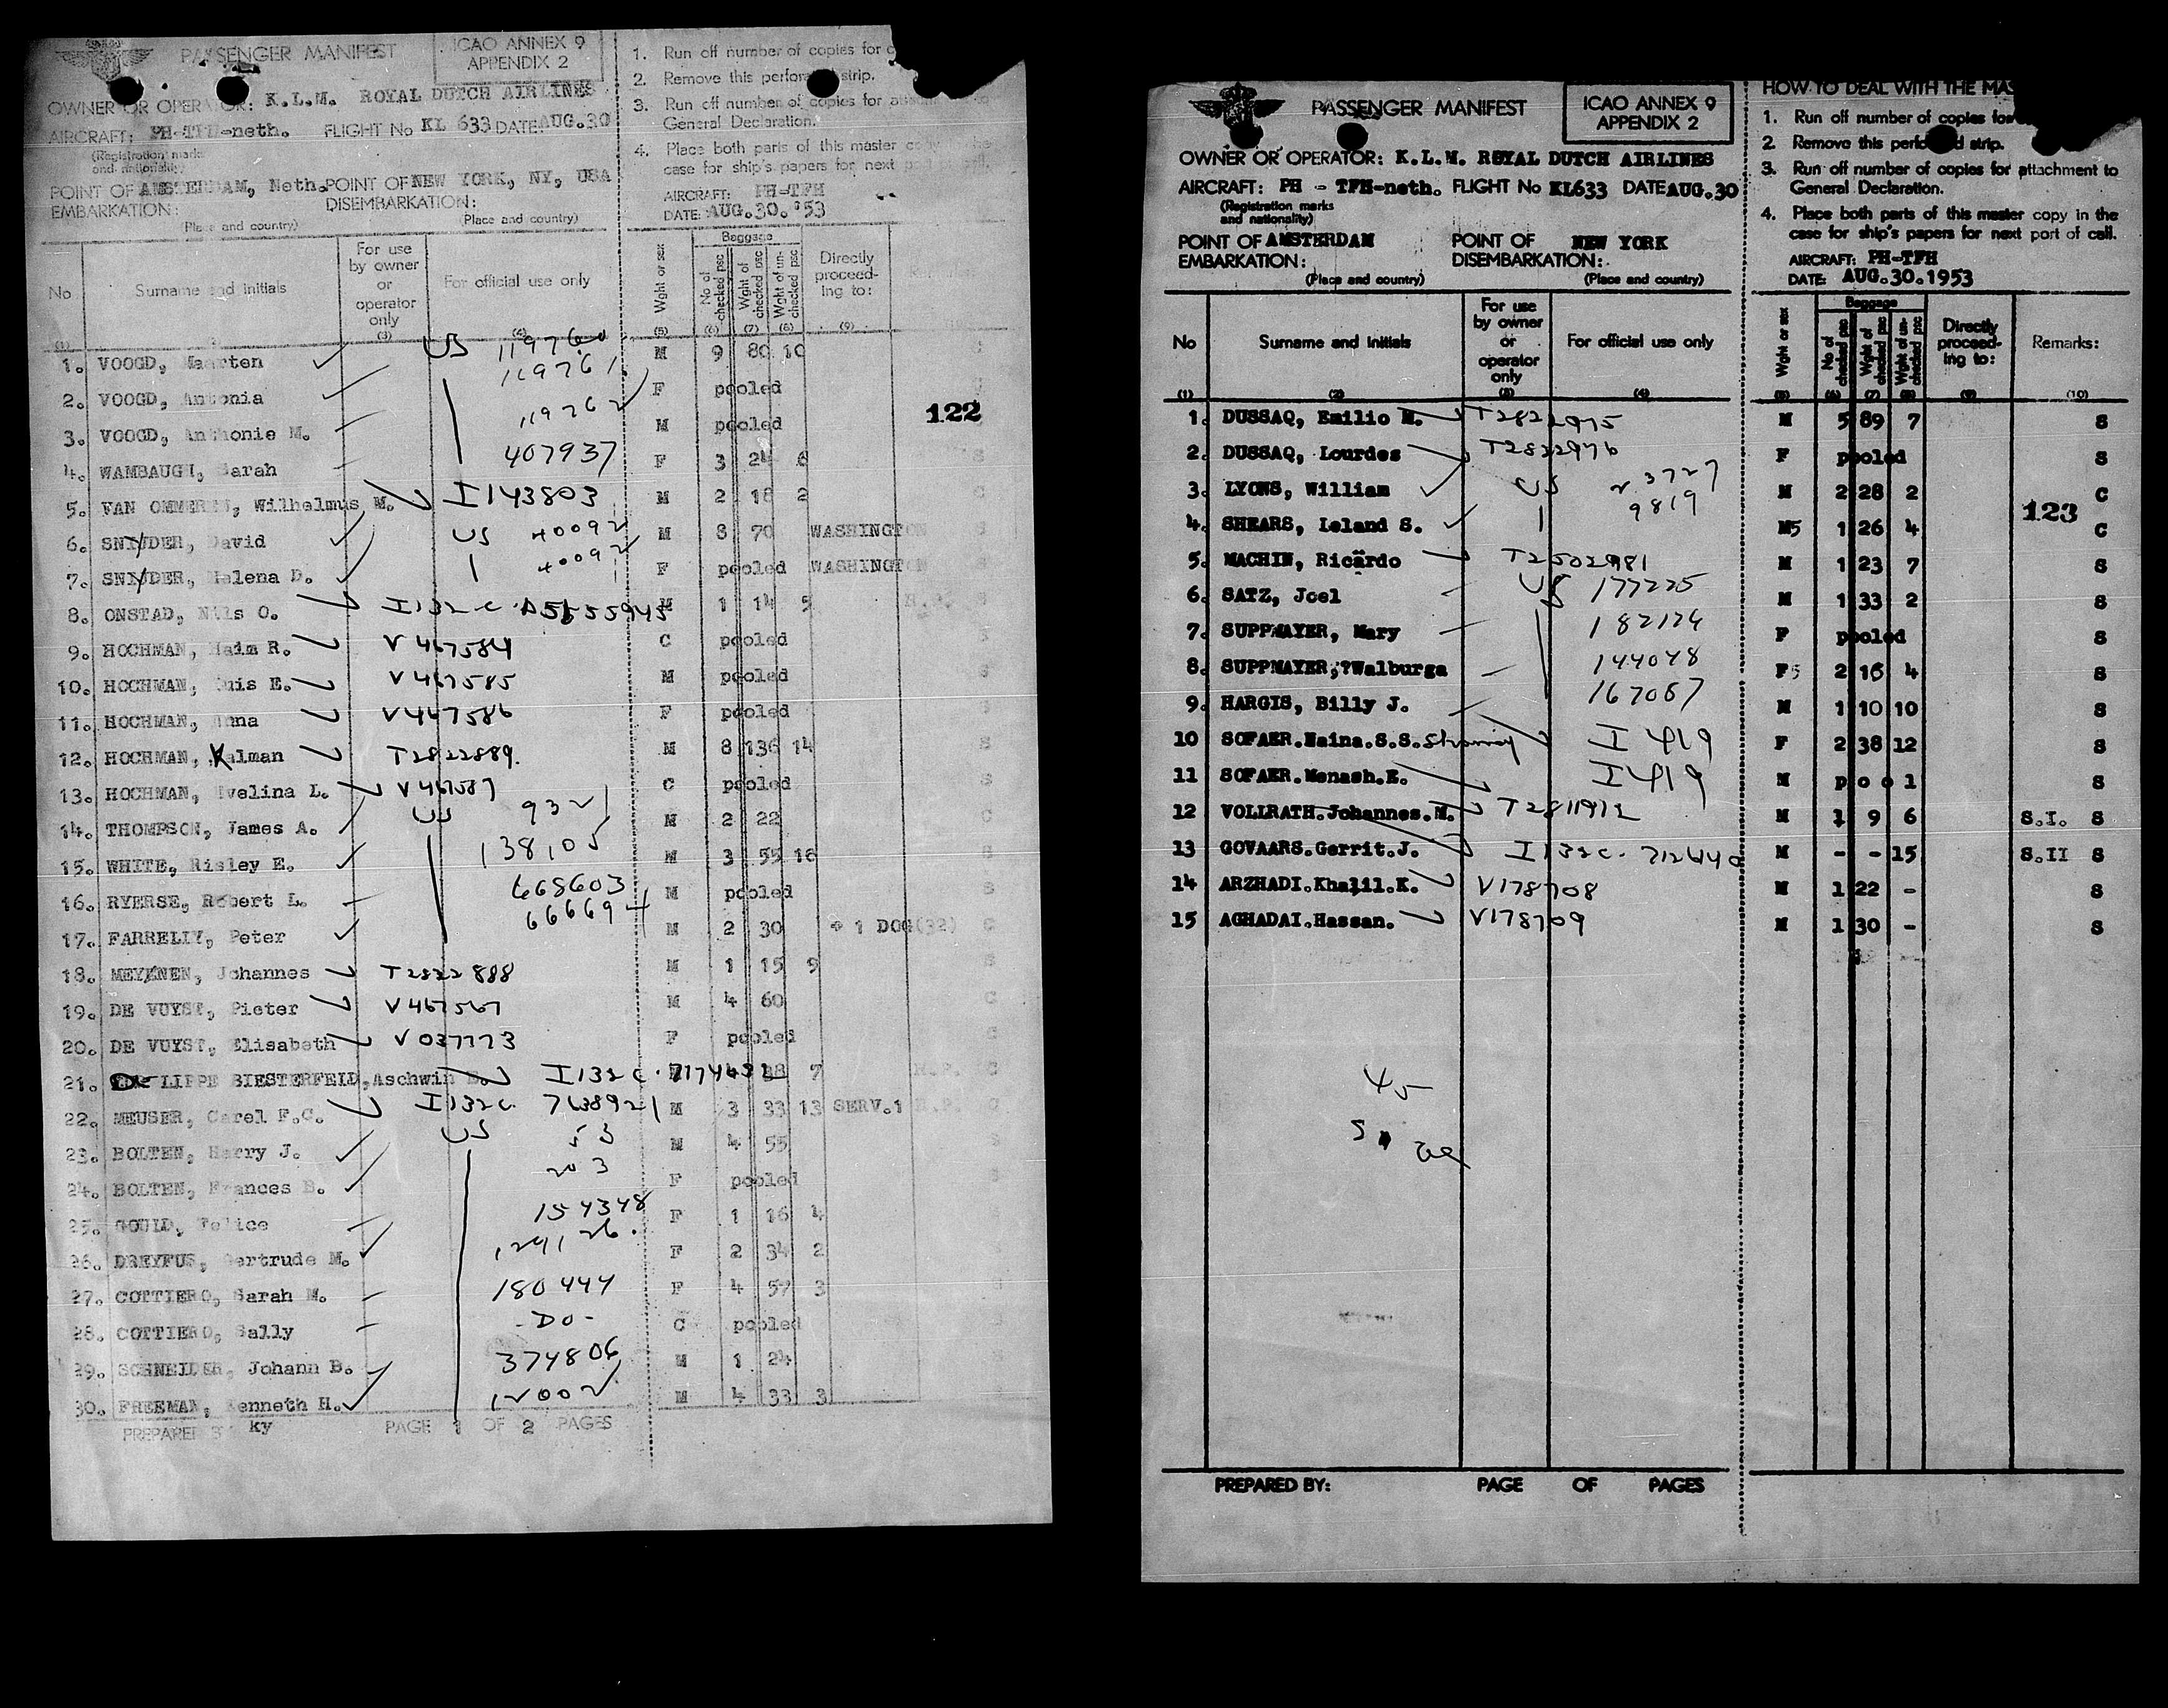 PASSENGER MANIFEST
ICAO ANNEX 9
APPENDIX 2
OWNER OR OPERATOR: K.L.M. ROYAL DUTCH AIRLINES
AIRCRAFT: PH-TFH-neth. FLIGHT No KL 633 DATE AUG.30
(Registration marks
and nationality)
POINT OF AMSTERDAM, Neth. POINT OF NEW YORK, NY, USA
EMBARKATION: DISEMBARKATION:
(Place and country) (Place and country)
1. Run off number of copies for
2. Remove this perforated strip.
3. Run off number of copies for attachment to
General Declaration.
4. Place both parts of this master copy in the
case for ship's papers for next port of call.
AIRCRAFT: PH-TFH
DATE: AUG.30.'53
No Surname and initials For use by owner or operator only For official use only Wght or sex Baggage No of checked psc Wght of checked psc Wght of un-checked psc Directly proceed-ing to:
(3) (4) (5) (6) (7) (8) (9)
1. VOOGD, Maarten US 119760 M 9 80 10 S
2. VOOGD, Antonia 119761 F pooled S
122
3. VOOGD, Anthonie M. 119762 M pooled
4. WAMBAUGH, Sarah 407937 F 3 24 6 S
5. VAN OMMEREN, Wilhelmus M. I143803 M 2 18 2
6. SNYDER, David US 40092 M 8 70 WASHINGTON S
7. SNYDER, Helena D. 40092 F pooled WASHINGTON S
8. ONSTAD, Nils O. I132 C A5655945 M 1 14 5 S
9. HOCHMAN, Haim R. V 467584 C pooled S
10. HOCHMAN, Luis E. V 467585 M pooled S
11. HOCHMAN, Anna V467586 F pooled S
12. HOCHMAN, Kalman T2822889. M 8 136 14 S
13. HOCHMAN, Evelina L. V 467587 C pooled S
14. THOMPSON, James A. US 9321 M 2 22 C
15. WHITE, Risley E. 138105 M 3 55 16 S
16. RYERSE, Robert L. 668603 M pooled S
17. FARRELLY, Peter 666694 M 2 30 + 1 DOG(32) C
18. MEYENEN, Johannes T2822888 M 1 15 9 S
19. DE VUYST, Pieter V467567 M 4 60 C
20. DE VUYST, Elisabeth V 037773 F pooled C
21. LIPPE BIESTERFELD, Aschwin I132 C. 7174432 38 7 C
22. MEUSER, Carel F.C. I132C. 7638921 M 3 33 13 SERV.1 C
23. BOLTEN, Harry J. US 53 M 4 55 S
24. BOLTEN, Frances B. 203 F pooled S
25. GOULD, Felice 154348 F 1 16 4
26. DREYFUS, Gertrude M. 129126. F 2 34 2
27. COTTIERO, Sarah M. 180444 F 4 57 3
28. COTTIERO, Sally -DO- C pooled
29. SCHNEIDER, Johann B. 374806 M 1 24
30. FREEMAN, Kenneth H. 12002 M 4 33 3
PREPARED BY ky PAGE 1 OF 2 PAGES
PASSENGER MANIFEST
ICAO ANNEX 9
APPENDIX 2
OWNER OR OPERATOR: K.L.M. ROYAL DUTCH AIRLINES
AIRCRAFT: PH - TFH-neth. FLIGHT No KL633 DATE AUG.30
(Registration marks
and nationality)
POINT OF AMSTERDAM POINT OF NEW YORK
EMBARKATION: DISEMBARKATION:
(Place and country) (Place and country)
HOW TO DEAL WITH THE MAS
1. Run off number of copies for
2. Remove this perforated strip.
3. Run off number of copies for attachment to
General Declaration.
4. Place both parts of this master copy in the
case for ship's papers for next port of call.
AIRCRAFT: PH-TFH
DATE: AUG.30.1953
No Surname and initials For use by owner or operator only For official use only Wght or sex Baggage No of checked psc Wght of checked psc Wght of un-checked psc Directly proceed-ing to: Remarks:
(1) (2) (3) (4) (5) (6) (7) (8) (9) (10)
1. DUSSAQ, Emilio M. T2822975 M 5 89 7 S
2. DUSSAQ, Lourdes T2822976 F pooled S
3. LYONS, William US 23727 M 2 28 2 C
123
4. SHEARS, Leland S. 9819 M5 1 26 4 C
5. MACHIN, Ricardo T2502981 M 1 23 7 S
6. SATZ, Joel US 177225 M 1 33 2 S
7. SUPPMAYER, Mary 182124 F pooled S
8. SUPPMAYER,?Walburga 144048 F5 2 16 4 S
9. HARGIS, Billy J. 167087 M 1 10 10 S
10 SOFAER.Naina.S.S. I 419 F 2 38 12 S
11 SOFAER.Menash.E. I 419 M p o o l S
12 VOLLRATH.Johannes.M. T2811912 M 1 9 6 S.I. S
13 GOVAARS.Gerrit.J. I132C. 7126440 M - - 15 S.II S
14 ARZHADI.Khalil.K. V178708 M 1 22 - S
15 AGHADAI.Hassan. V178709 M 1 30 - S
45
PREPARED BY: PAGE OF PAGES